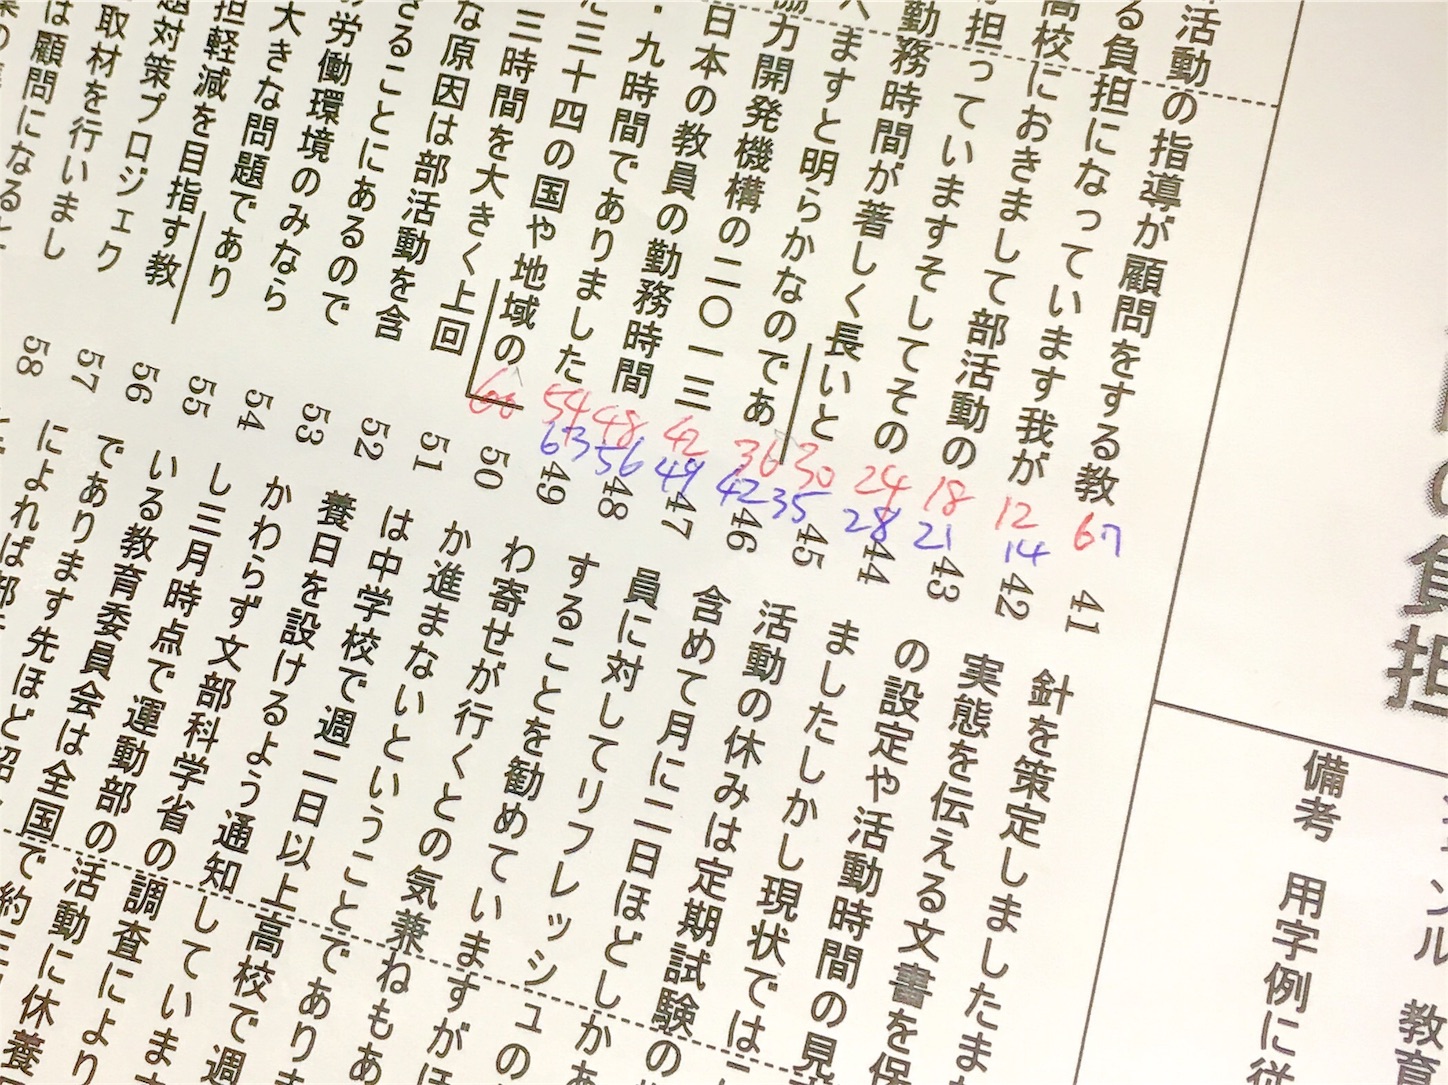 の負担
ンル 教育
備考 用字例に従
活動の指導が顧問をする教
る負担になっています我が
高校におきまして部活動の
担っていますそしてその
勤務時間が著しく長いと
ますと明らかなのであ
協力開発機構の二〇一三
日本の教員の勤務時間
・九時間でありました
た三十四の国や地域の
三時間を大きく上回
な原因は部活動を含
さることにあるので
労働環境のみなら
大きな問題であり
担軽減を目指す教
題対策プロジェク
取材を行いまし
は顧問になると
6 7
12 14
18 21
24 28
30 35
36 42
42 49
48 56
54 63
60
41 針を策定しましたま
42 実態を伝える文書を保
43 の設定や活動時間の見
44 ましたしかし現状では
45 活動の休みは定期試験の
46 含めて月に二日ほどしかあ
47 員に対してリフレッシュの
48 することを勧めていますがほ
49 わ寄せが行くとの気兼ねもあ
50 か進まないということでありま
51 は中学校で週二日以上高校で週
52 養日を設けるよう通知していま
53 かわらず文部科学省の調査により
54 し三月時点で運動部の活動に休養
55 いる教育委員会は全国で約三
56 であります先ほど紹
57 によれば部
58